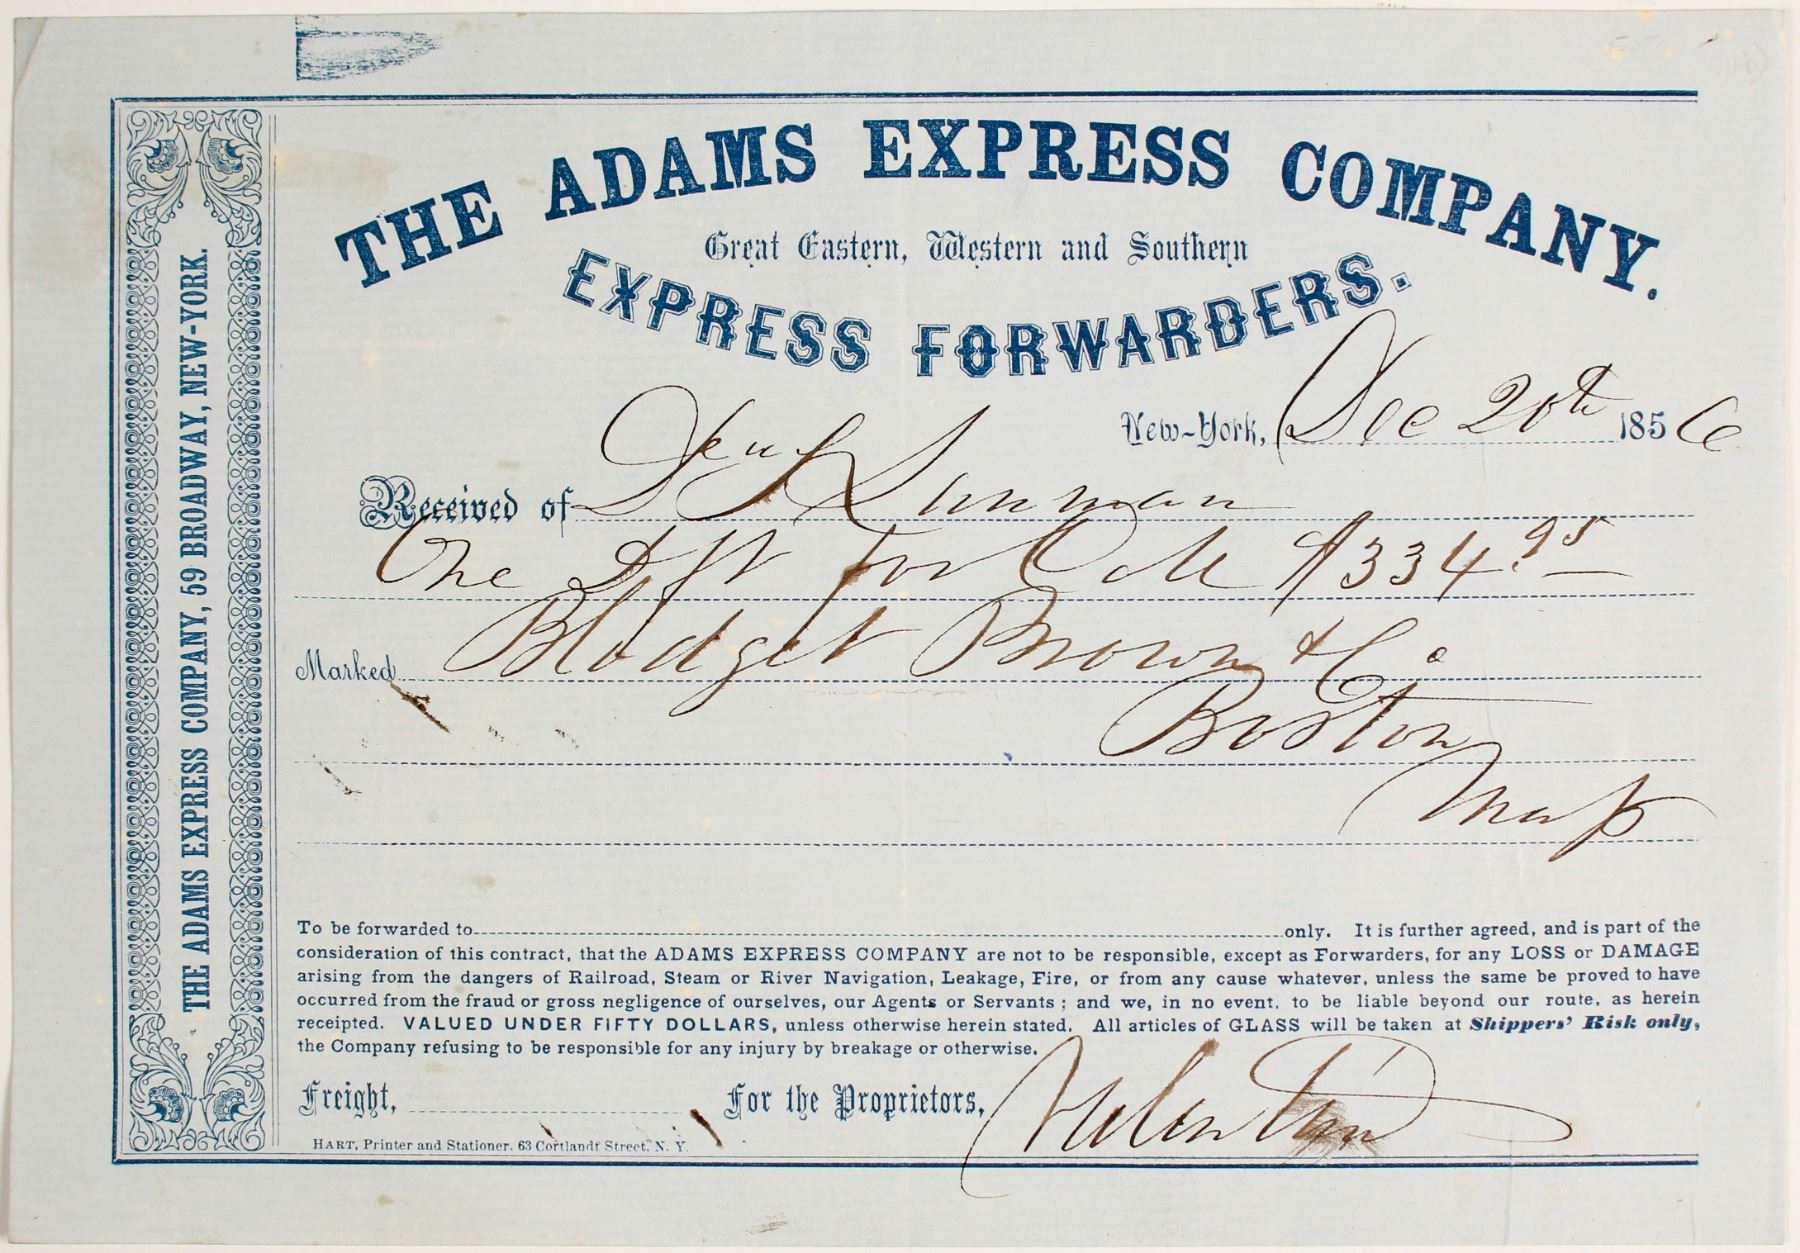 THE ADAMS EXPRESS COMPANY.
Great Eastern, Western and Southern
EXPRESS FORWARDERS.
New-York, Dec 20th 1856
Received of Lanman
One Dft for Colln $334.95
Marked Blodget Brown & Co
Boston
Mass
To be forwarded to only. It is further agreed, and is part of the
consideration of this contract, that the ADAMS EXPRESS COMPANY are not to be responsible, except as Forwarders, for any LOSS or DAMAGE
arising from the dangers of Railroad, Steam or River Navigation, Leakage, Fire, or from any cause whatever, unless the same be proved to have
occurred from the fraud or gross negligence of ourselves, our Agents or Servants; and we, in no event, to be liable beyond our route, as herein
receipted. VALUED UNDER FIFTY DOLLARS, unless otherwise herein stated. All articles of GLASS will be taken at Shippers' Risk only,
the Company refusing to be responsible for any injury by breakage or otherwise.
Freight, For the Proprietors, Valentine
HART, Printer and Stationer, 63 Cortlandt Street, N. Y.
THE ADAMS EXPRESS COMPANY, 59 BROADWAY, NEW-YORK.